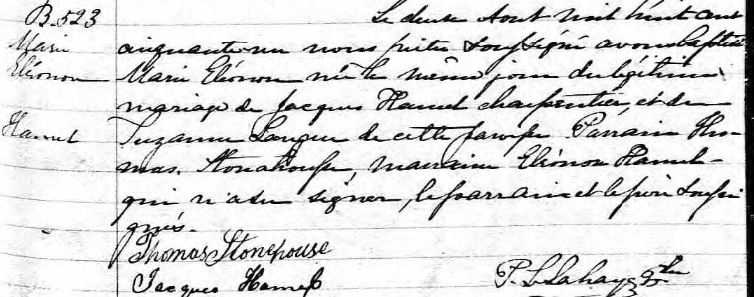 B.523
Marie
Eléonore
Hamel
Le douze Aout mil huit cent
cinquante un nous prêtre soussigné avons baptisé
Marie Eléonore née le même jour du légitime
mariage de Jacques Hamel charpentier, et de
Suzanne Langue de cette paroisse Parrain Tho-
mas Stonehouse, marraine Eléonore Hamel
qui n'a su signer, le parrain et le père soussi
gnés.
Thomas Stonehouse
Jacques Hamel
P. L. Lahaye Ptre